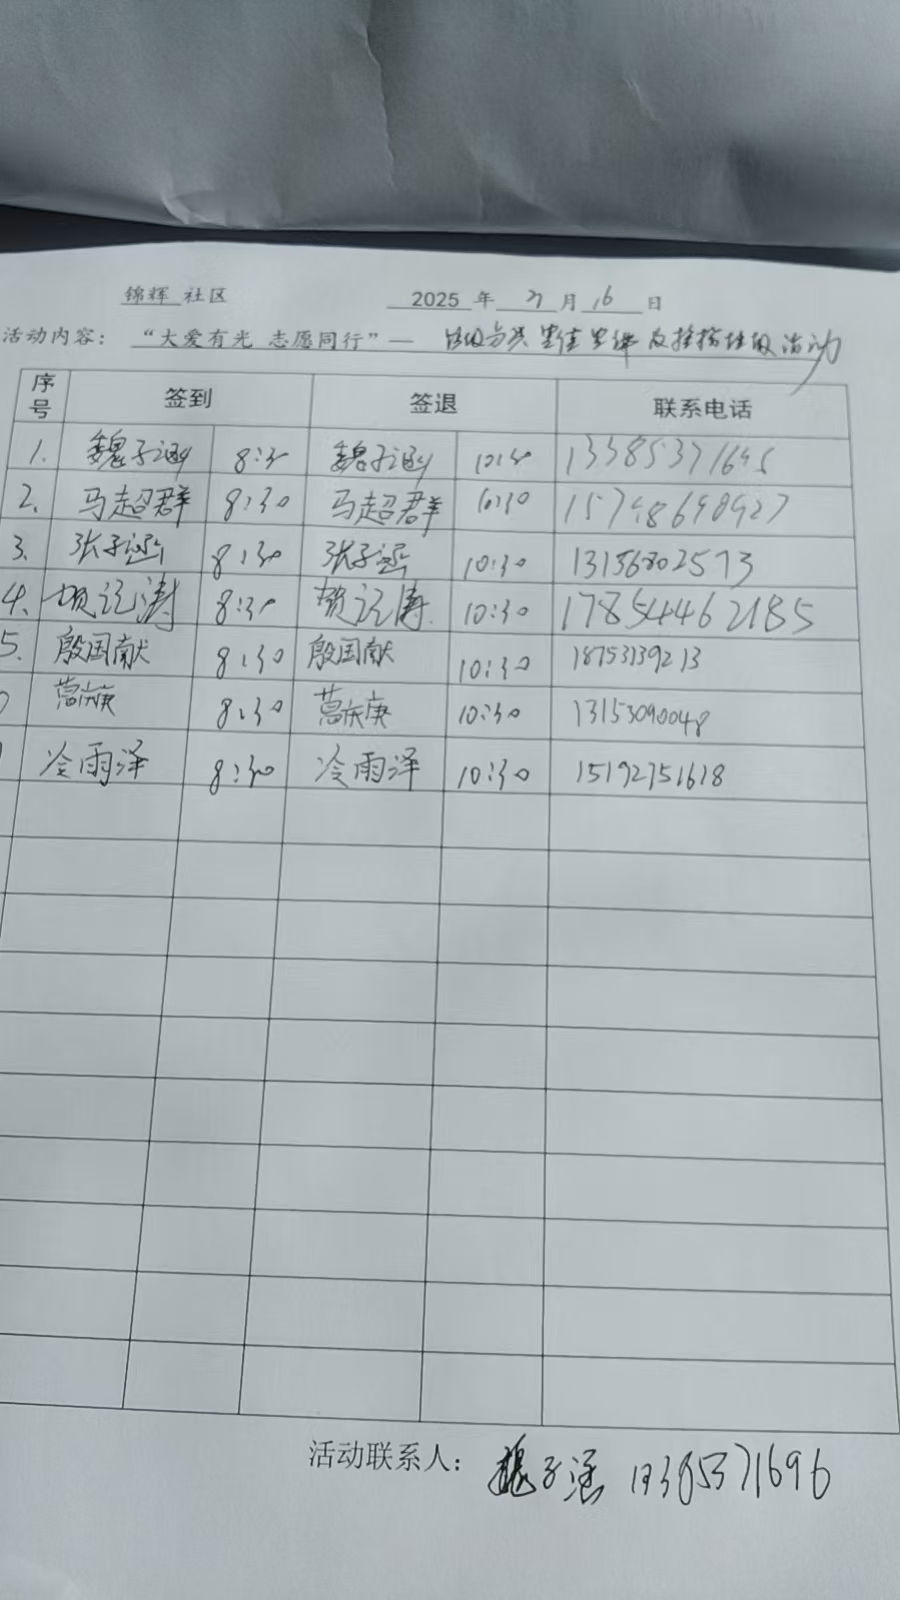 锦辉 社区 2025 年 7 月 16 日
活动内容： “大爱有光 志愿同行”— 活动
序号 签到 签退 联系电话
1. 魏子涵 8:30 魏子涵 10:30
2. 马超群 8:30 马超群 10:30 15748640927
3. 张子涵 8:30 张子涵 10:30 13156802573
4. 8:30 10:30 17854462185
5. 殷国献 8:30 殷国献 10:30 18753139213
葛庆庚 8:30 葛庆庚 10:30 13153090048
冷雨泽 8:30 冷雨泽 10:30 15192751618
活动联系人： 魏子涵 13385371696